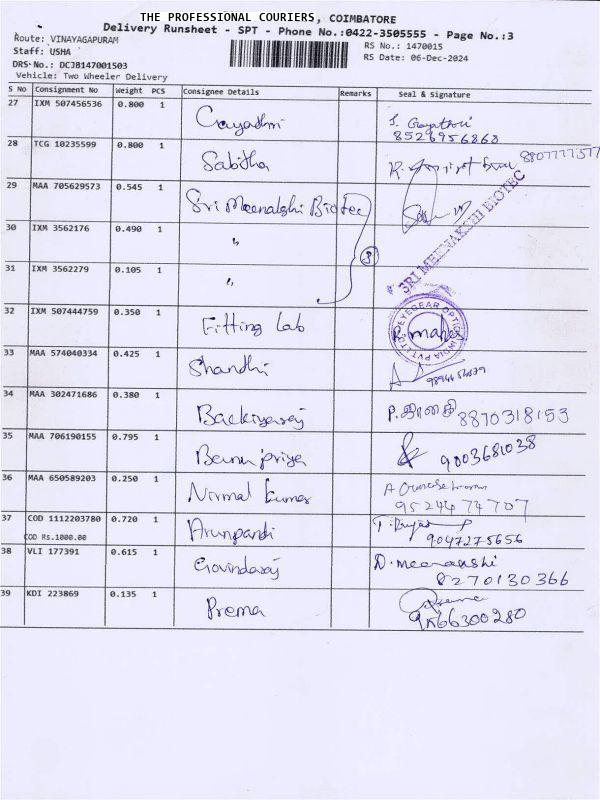 THE PROFESSIONAL COURIERS, COIMBATORE
Delivery Runsheet - SPT - Phone No.:0422-3505555 - Page No.:3
Route: VINAYAGAPURAM
RS No.: 1470015
Staff: USHA
RS Date: 06-Dec-2024
DRS-No.: DCJB147001503
Vehicle: Two Wheeler Delivery
S No Consignment No Weight PCS Consignee Details Remarks Seal & Signature
27 IXM 507456536 0.800 1 Gayathri
8526956868
28 TCG 10235599 0.800 1 Sabitha
29 MAA 705629573 0.545 1 Sri Meenakshi Biotec
SRI MEENAKSHI BIOTEC
30 IXM 3562176 0.490 1 "
31 IXM 3562279 0.105 1 " 3
32 IXM 507444759 0.350 1 Fitting Lab
33 MAA 574040334 0.425 1 Shandhi
34 MAA 302471686 0.380 1 Backiyaraj 8870318153
35 MAA 706190155 0.795 1 Banu priya 9003681038
36 MAA 650589203 0.250 1 Nirmal kumar
9524474707
37 COD 1112203780 0.720 1 Arunpandi
COD RS.1000.00 9047275656
38 VLI 177391 0.615 1 Govindaraj D. meenakshi
8270130366
39 KDI 223869 0.135 1 Prema Prema
9566300280